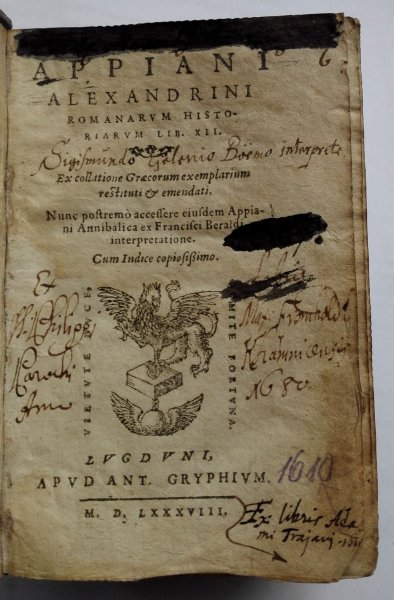 6
APPIANI
ALEXANDRINI
ROMANARVM HISTO-
RIARVM LIB. XII.
Sigismundo Gelenio Böemo interprete
Ex collatione Græcorum exemplarium
restituti & emendati.
Nunc postremò accessere eiusdem Appia-
ni Annibalica ex Francisci Beraldi
interpretatione.
Cum Indice copiosißimo.
Et
VIRTVTE DVCE,
COMITE FORTVNA.
Philippi
Parochi
LVGDVNI,
APVD ANT. GRYPHIVM.
1610
M. D. LXXXVIII.
Ex libris Ada
mi Trajani